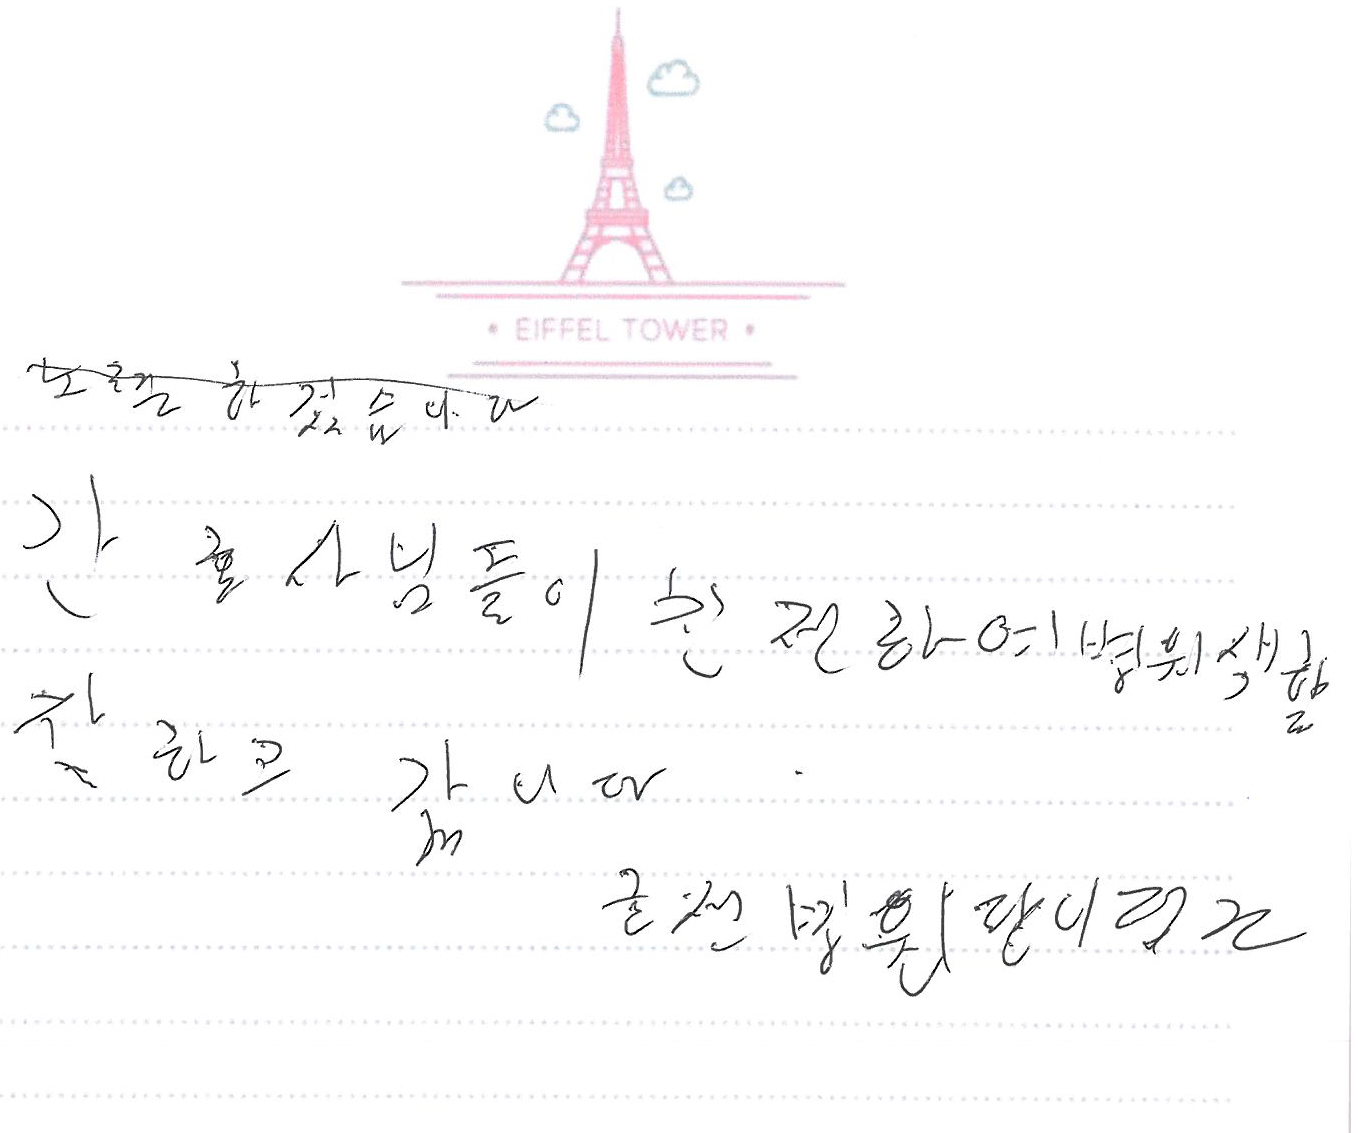 • EIFFEL TOWER •
노력 하겠습니다
간호사님들이 친절하여 병원생활
잘하고 갑니다.
금천 병원